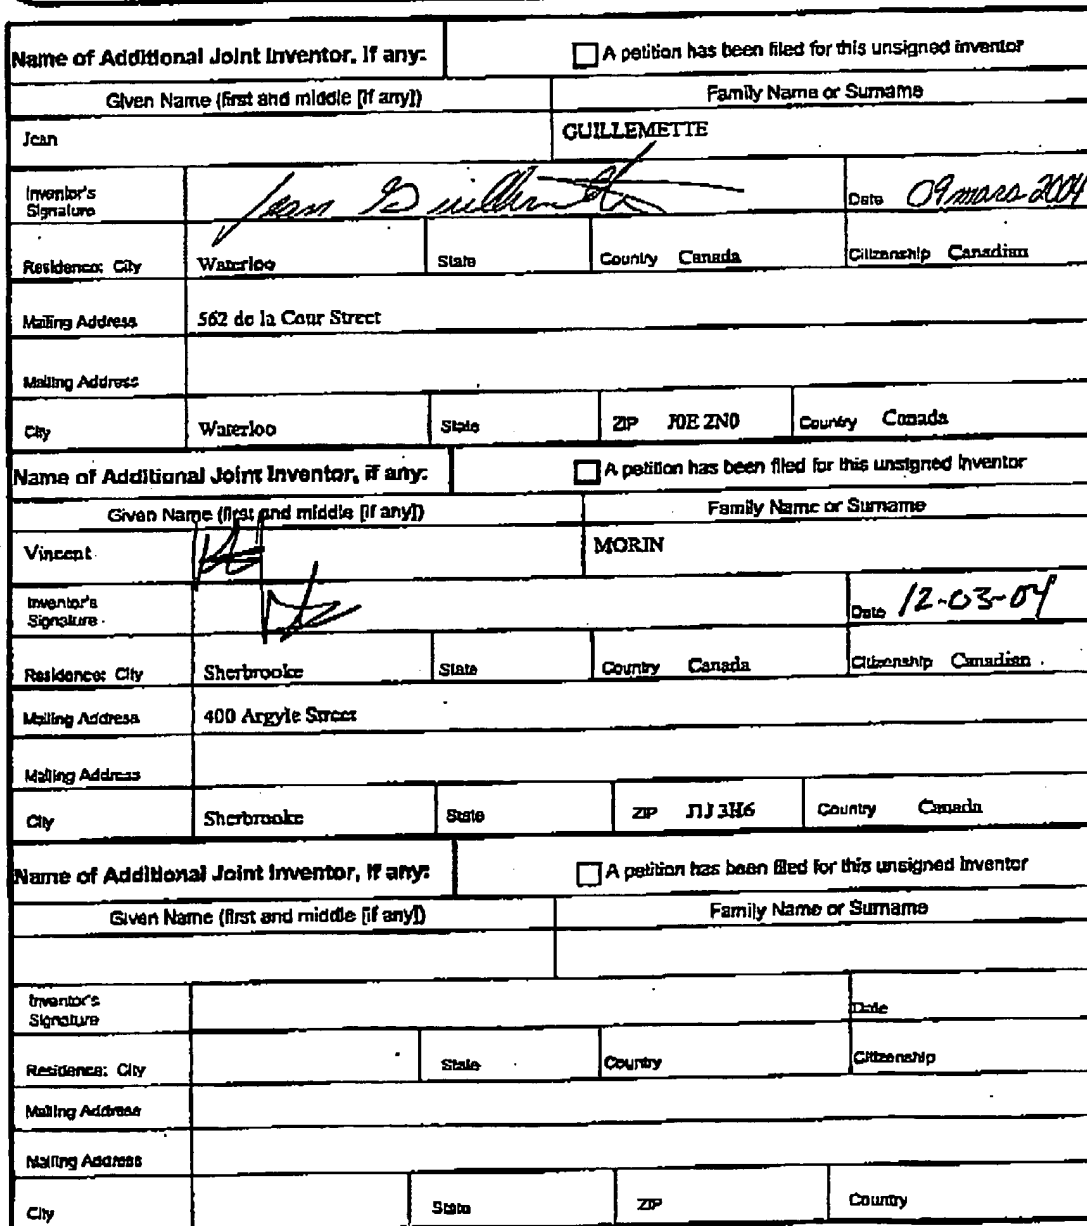 Name of Additional Joint Inventor, if any: A petition has been filed for this unsigned inventor
Given Name (first and middle [if any]) Family Name or Surname
Jean GUILLEMETTE
Inventor's Signature Jean Guillemette Date 09 mars 2004
Residence: City Waterloo State Country Canada Citizenship Canadian
Mailing Address 562 de la Cour Street
Mailing Address
City Waterloo State ZIP J0E 2N0 Country Canada
Name of Additional Joint Inventor, if any: A petition has been filed for this unsigned inventor
Given Name (first and middle [if any]) Family Name or Surname
Vincent MORIN
Inventor's Signature Date 12-03-04
Residence: City Sherbrooke State Country Canada Citizenship Canadian
Mailing Address 400 Argyle Street
Mailing Address
City Sherbrooke State ZIP J1J 3H6 Country Canada
Name of Additional Joint Inventor, if any: A petition has been filed for this unsigned inventor
Given Name (first and middle [if any]) Family Name or Surname
Inventor's Signature Date
Residence: City State Country Citizenship
Mailing Address
Mailing Address
City State ZIP Country